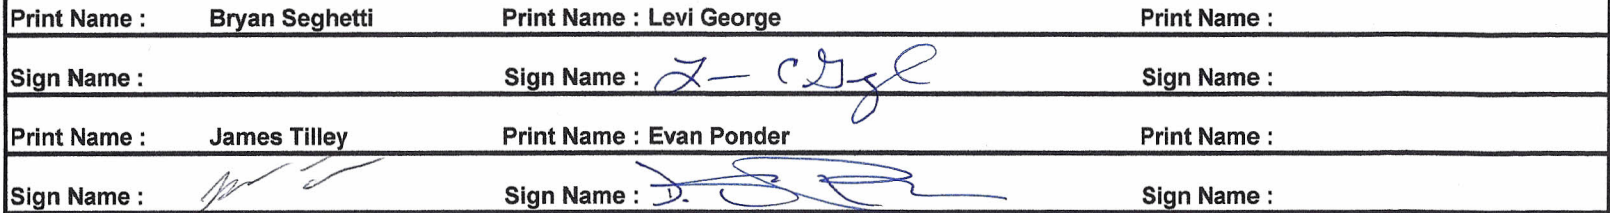 Print Name : Bryan Seghetti Print Name : Levi George Print Name :
Sign Name : Sign Name : Sign Name :
Print Name : James Tilley Print Name : Evan Ponder Print Name :
Sign Name : Sign Name : D. Sign Name :